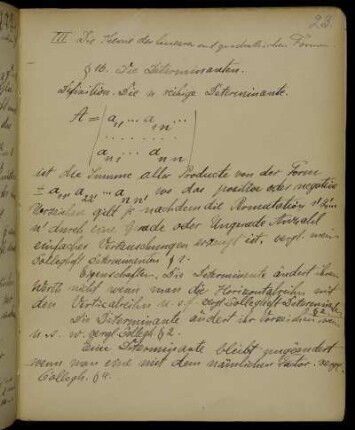 23.
III Die Theorie der linearen und quadratischen Formen.
§ 16. Die Determinanten.
Definition. Die n reihige Determinante.
A = | a₁₁ ... a₁ₙ |
. . . . . . .
aₙ₁ ... aₙₙ
ist die Summe aller Producte von der Form
± a₁₁' a₂₂' ... aₙₙ' wo das positive oder negative
Vorzeichen gilt je nachdem die Permutation 1' 2'
n' durch eine Grade oder Ungerade Anzahl
einfacher Vertauschungen erzeugt ist. vergl. mein
Collegheft Determinanten § 1.
Eigenschaften. Die Determinante ändert ihren
Werth nicht wenn man die Horizontalreihen mit
den Verticalreihen u. s. f. vergl Collegheft Determinant.
§ 2
Die Determinante ändert ihr Vorzeichen wenn
u. s. w. vergl Collegh § 2.
Eine Determinante bleibt ungeändert
wenn man eine mit dem nämlichen Factor. vergl.
Collegh. § 4.